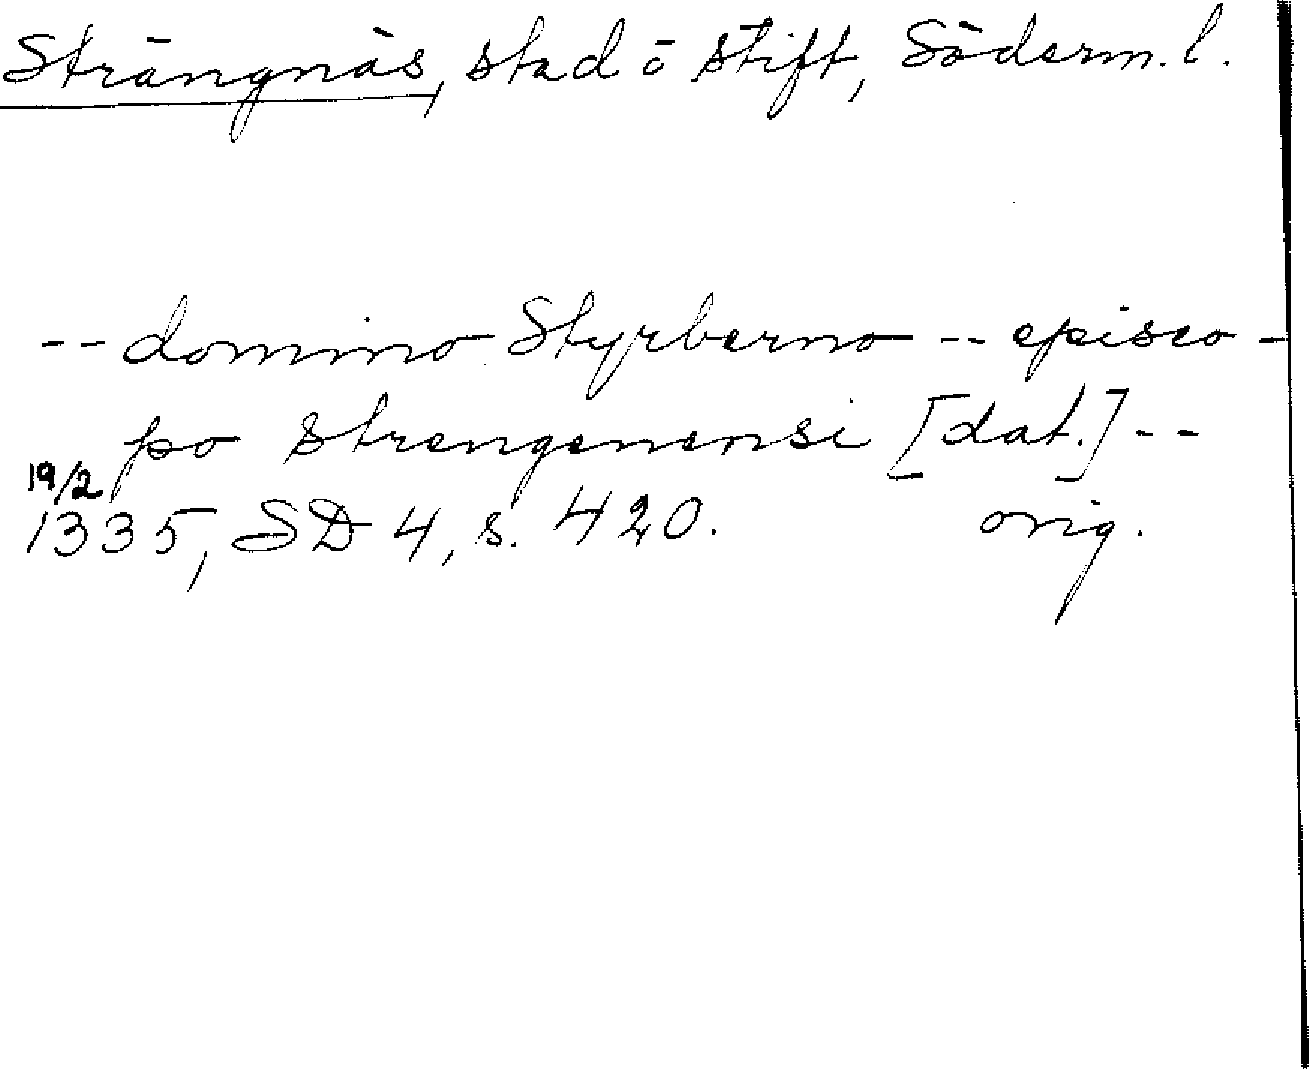 Strängnäs, stad ö stift, Söderm. l.
-- domino Styrberno -- episco-
po strengenensi [dat.] --
19/2
1335, SD 4, s. 420. orig.